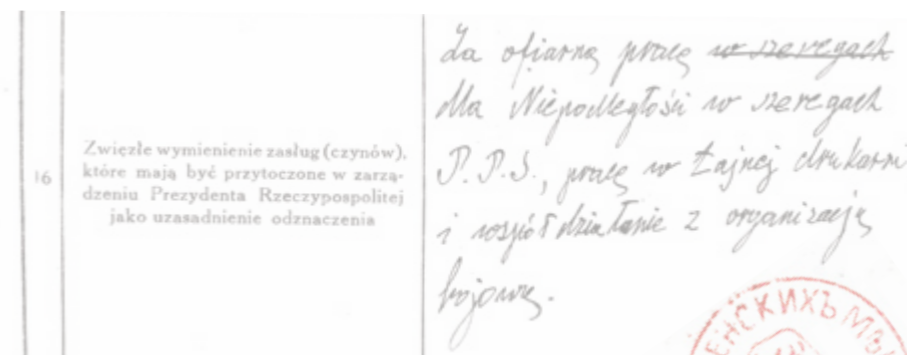 16
Zwięzłe wymienienie zasług (czynów),
które mają być przytoczone w zarzą-
dzeniu Prezydenta Rzeczypospolitej
jako uzasadnienie odznaczenia
Za ofiarną pracę w szeregach
dla Niepodległości w szeregach
P.P.S., pracę w tajnej drukarni
i współdziałanie z organizacją
bojową.